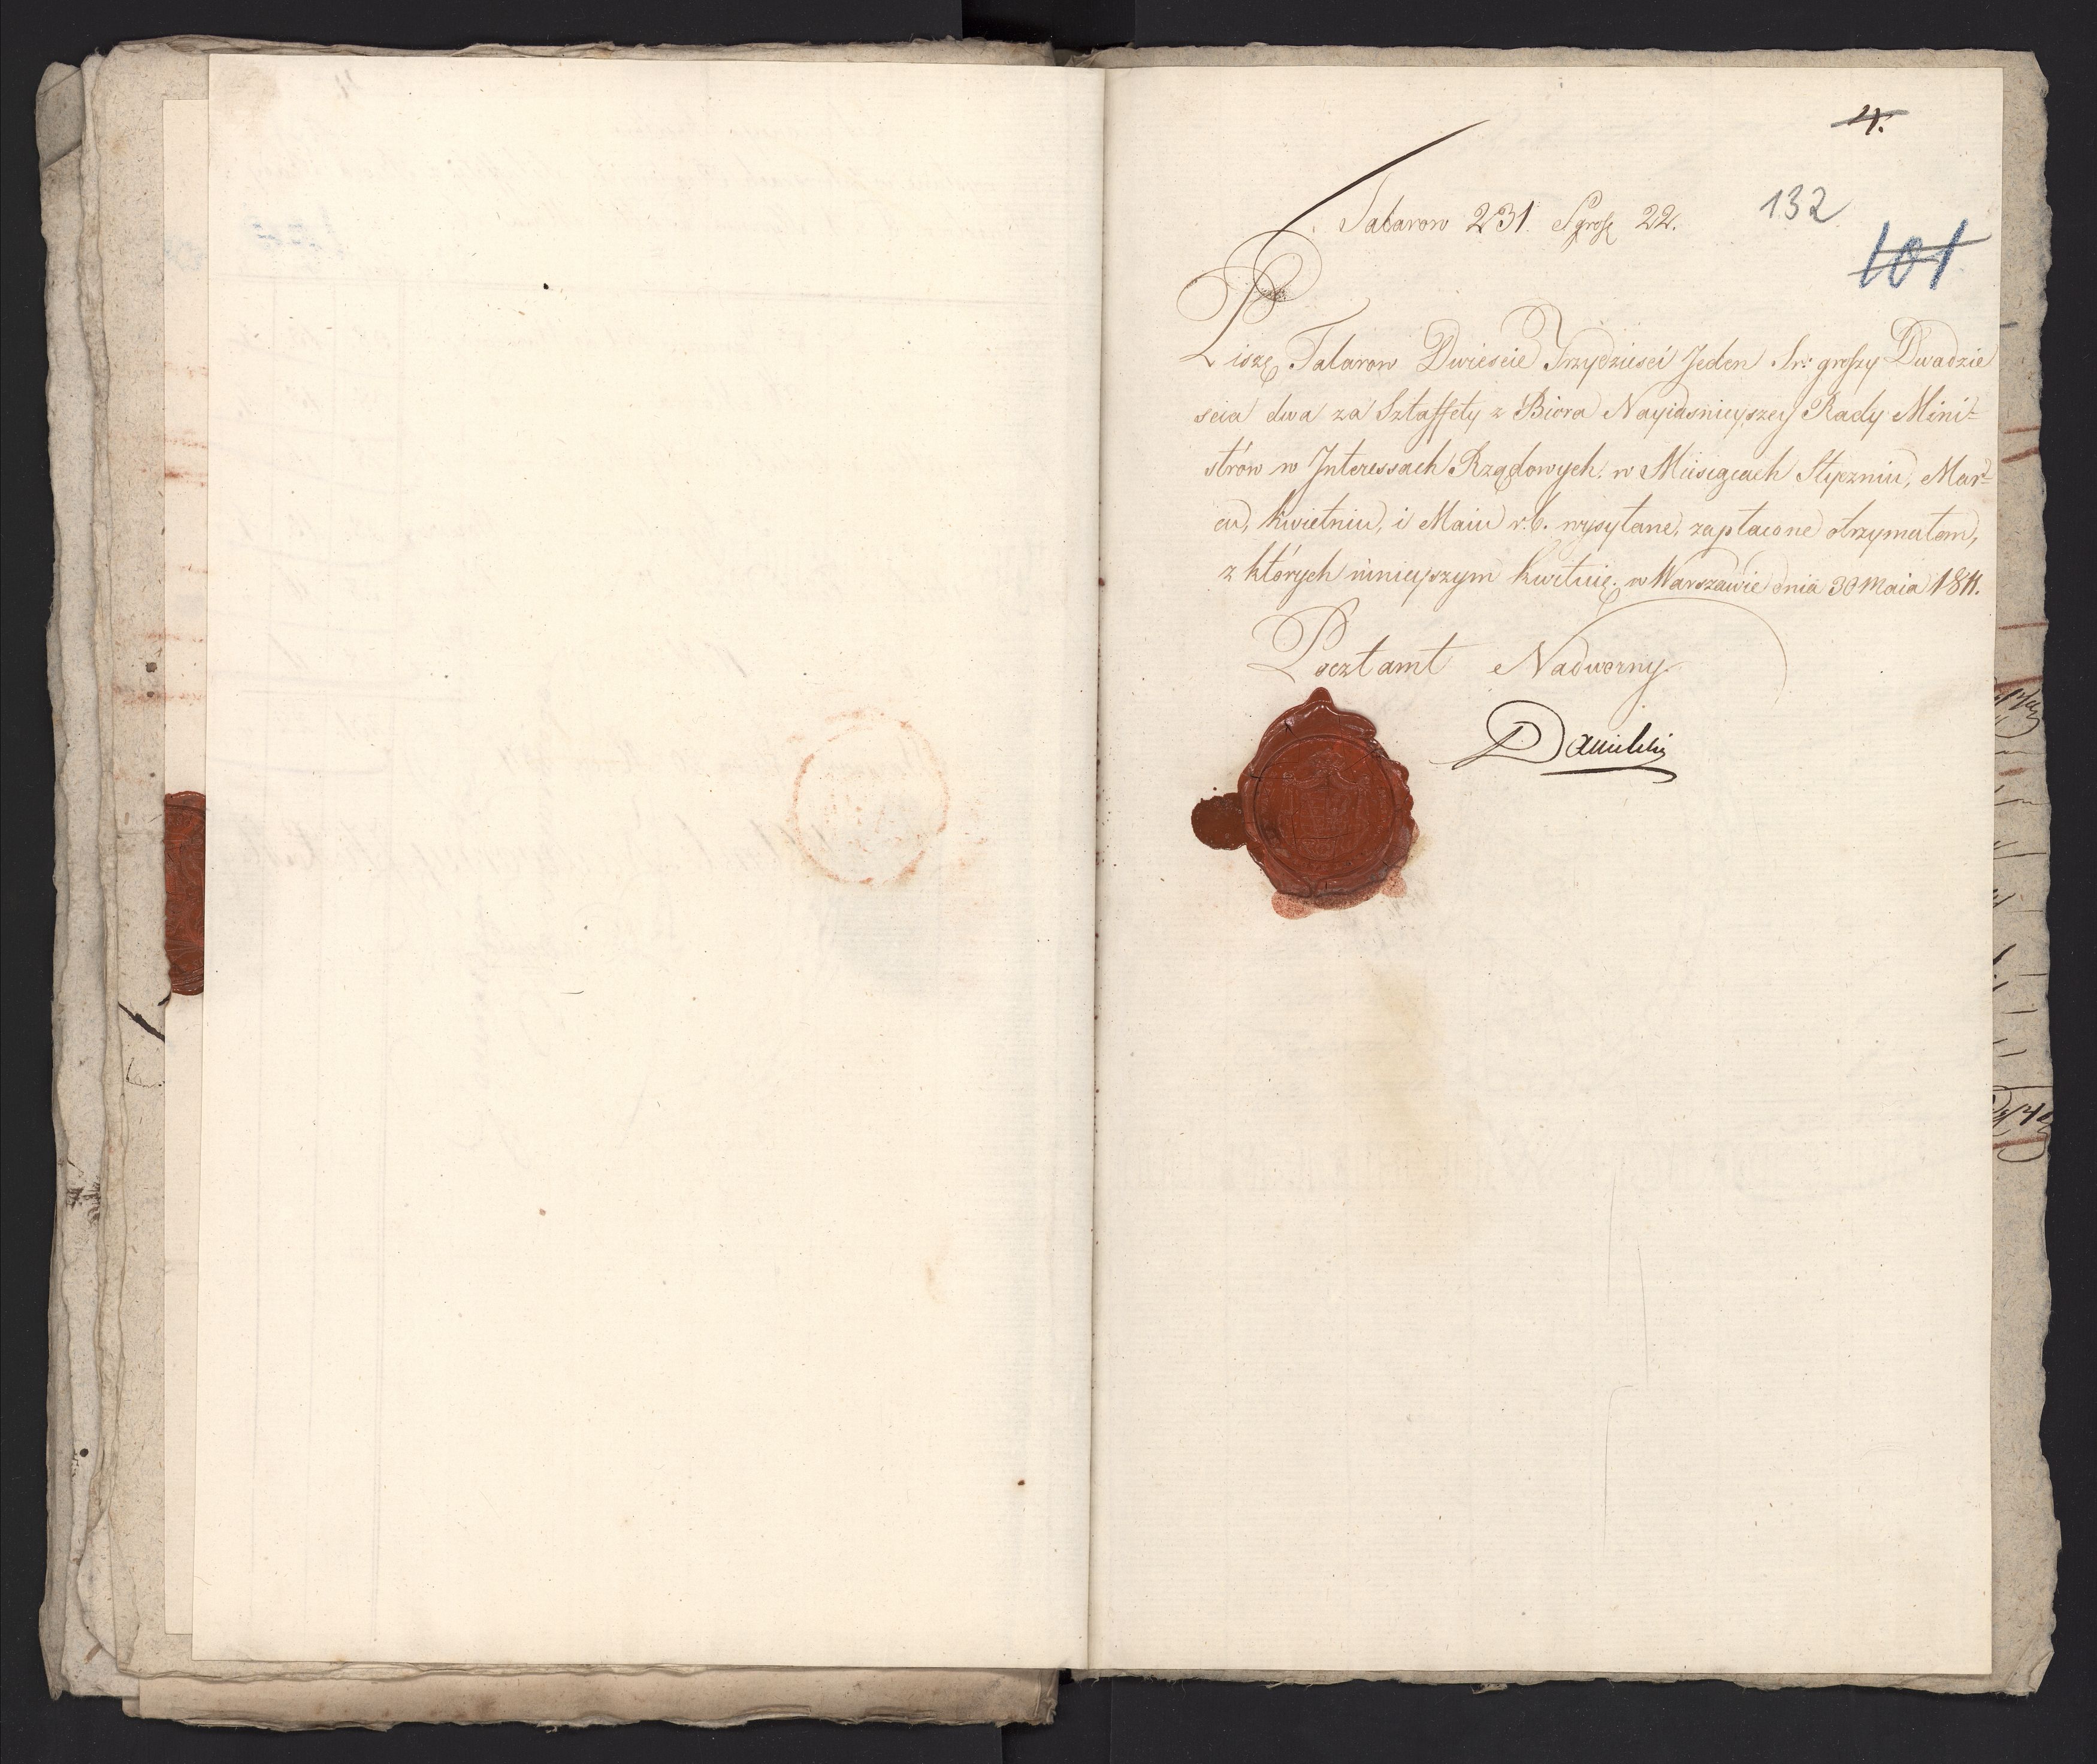 4.
Talarow 231. Sgrosz 22.
132
101
Piszę Talarow Dwieście Trzydzieści Jeden śr: groszy Dwadzie
ścia dwa za Sztaffety z Biora Nayiaśnieyszey Rady Mini-
strów w Interessach Rządowych. w Miesiącach Styczniu, Mar-
cu, kwietniu, i Maiu r.b. wysyłane, zapłacone otrzymałem,
z których ninieyszym kwituię. w Warszawie dnia 30 Maia 1811.
Pocztamt Nadworny
Danielski